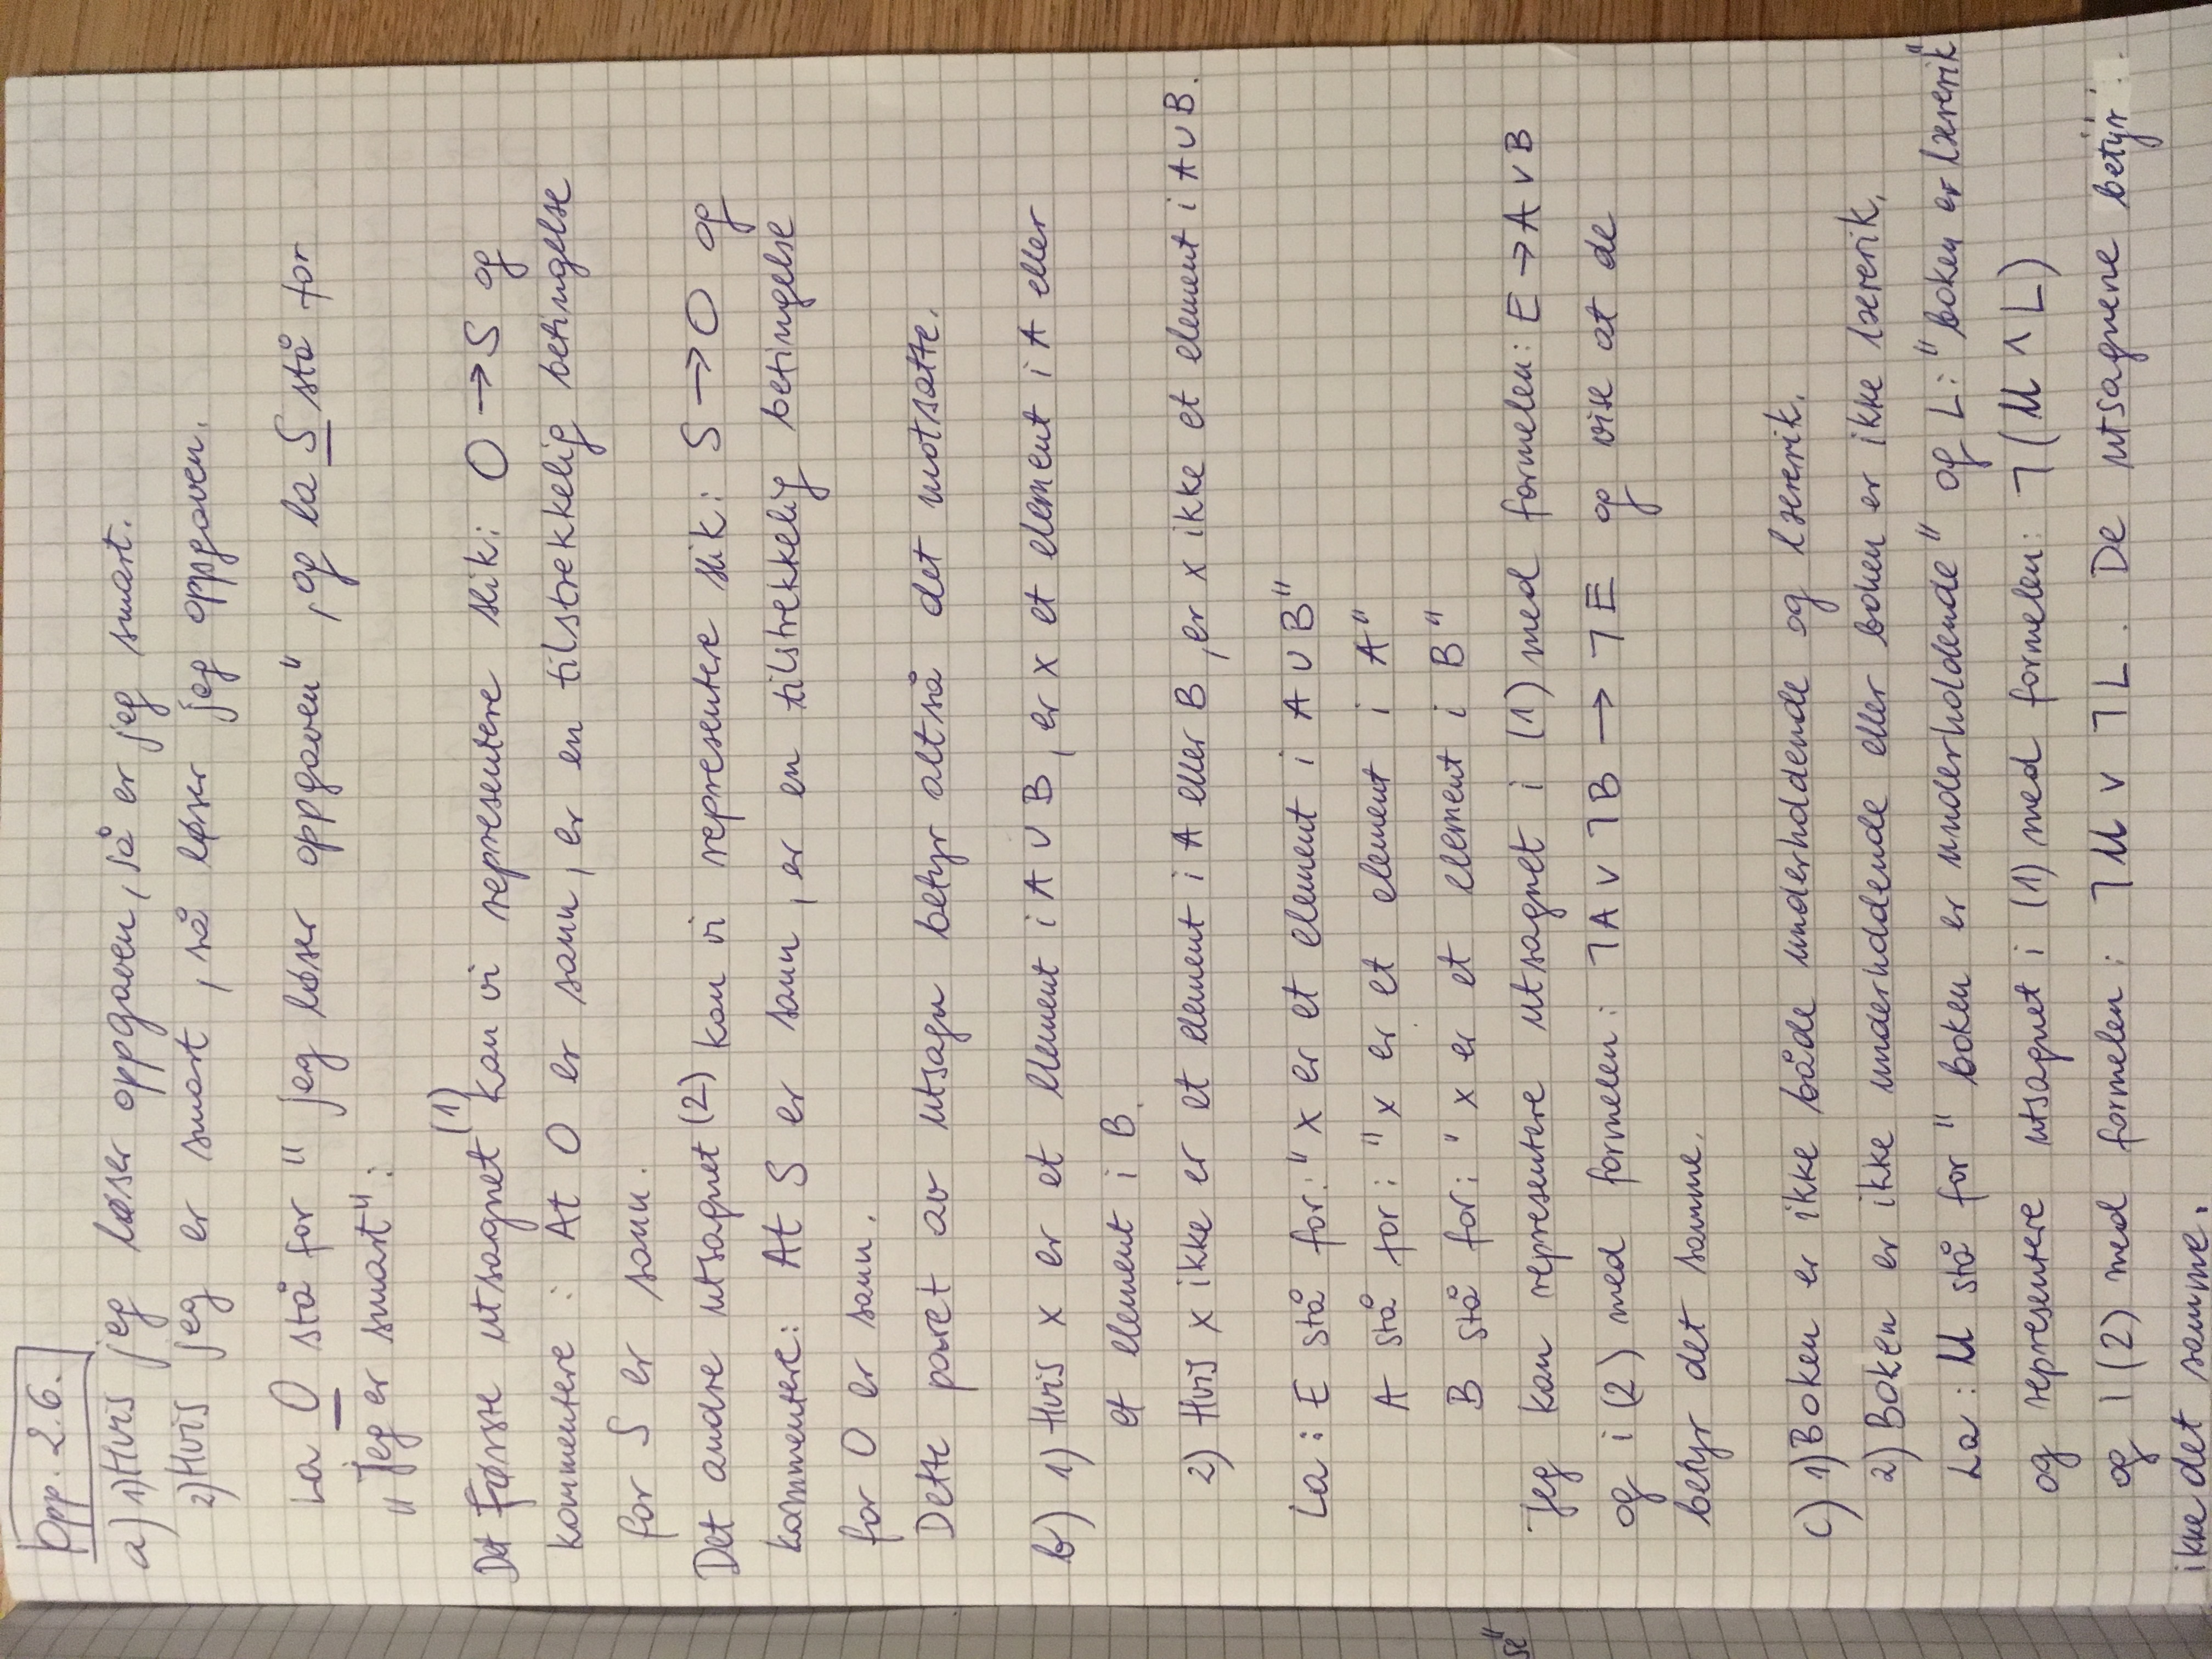 Opp. 2.6.
a) 1) Hvis jeg løser oppgaven, så er jeg smart.
2) Hvis jeg er smart, så løser jeg oppgaven.
La O stå for " jeg løser oppgaven", og la S stå for
„ Jeg er smart":
Det første utsagnet (1) kan vi representere slik: O → S og
kommentere : At O er sann, er en tilstrekkelig betingelse
for S er sann.
Det andre utsagnet (2) kan vi representere slik: S → O og
kommentere: At S er sann, er en tilstrekkelig betingelse
for O er sann.
Dette paret av utsagn betyr altså det motsatte.
b) 1) Hvis x er et element i A ∪ B, er x et element i A eller
et element i B.
2) Hvis x ikke er et element i A eller B, er x ikke et element i A ∪ B.
La : E stå for: " x er et element i A ∪ B"
A stå for: " x er et element i A"
B stå for: " x er et element i B"
se"
Jeg kan representere utsagnet i (1) med formelen: E → A ∨ B
og i (2) med formelen: ¬A ∨ ¬B → ¬E og vise at de
betyr det samme.
c) 1) Boken er ikke både underholdende og lærerik.
2) Boken er ikke underholdende eller boken er ikke lærerik.
La : U stå for " boken er underholdende" og L: "boken er lærerik"
og representere utsagnet i (1) med formelen: ¬(U ∧ L)
og i (2) med formelen: ¬U ∨ ¬L. De utsagnene betyr
ikke det samme.